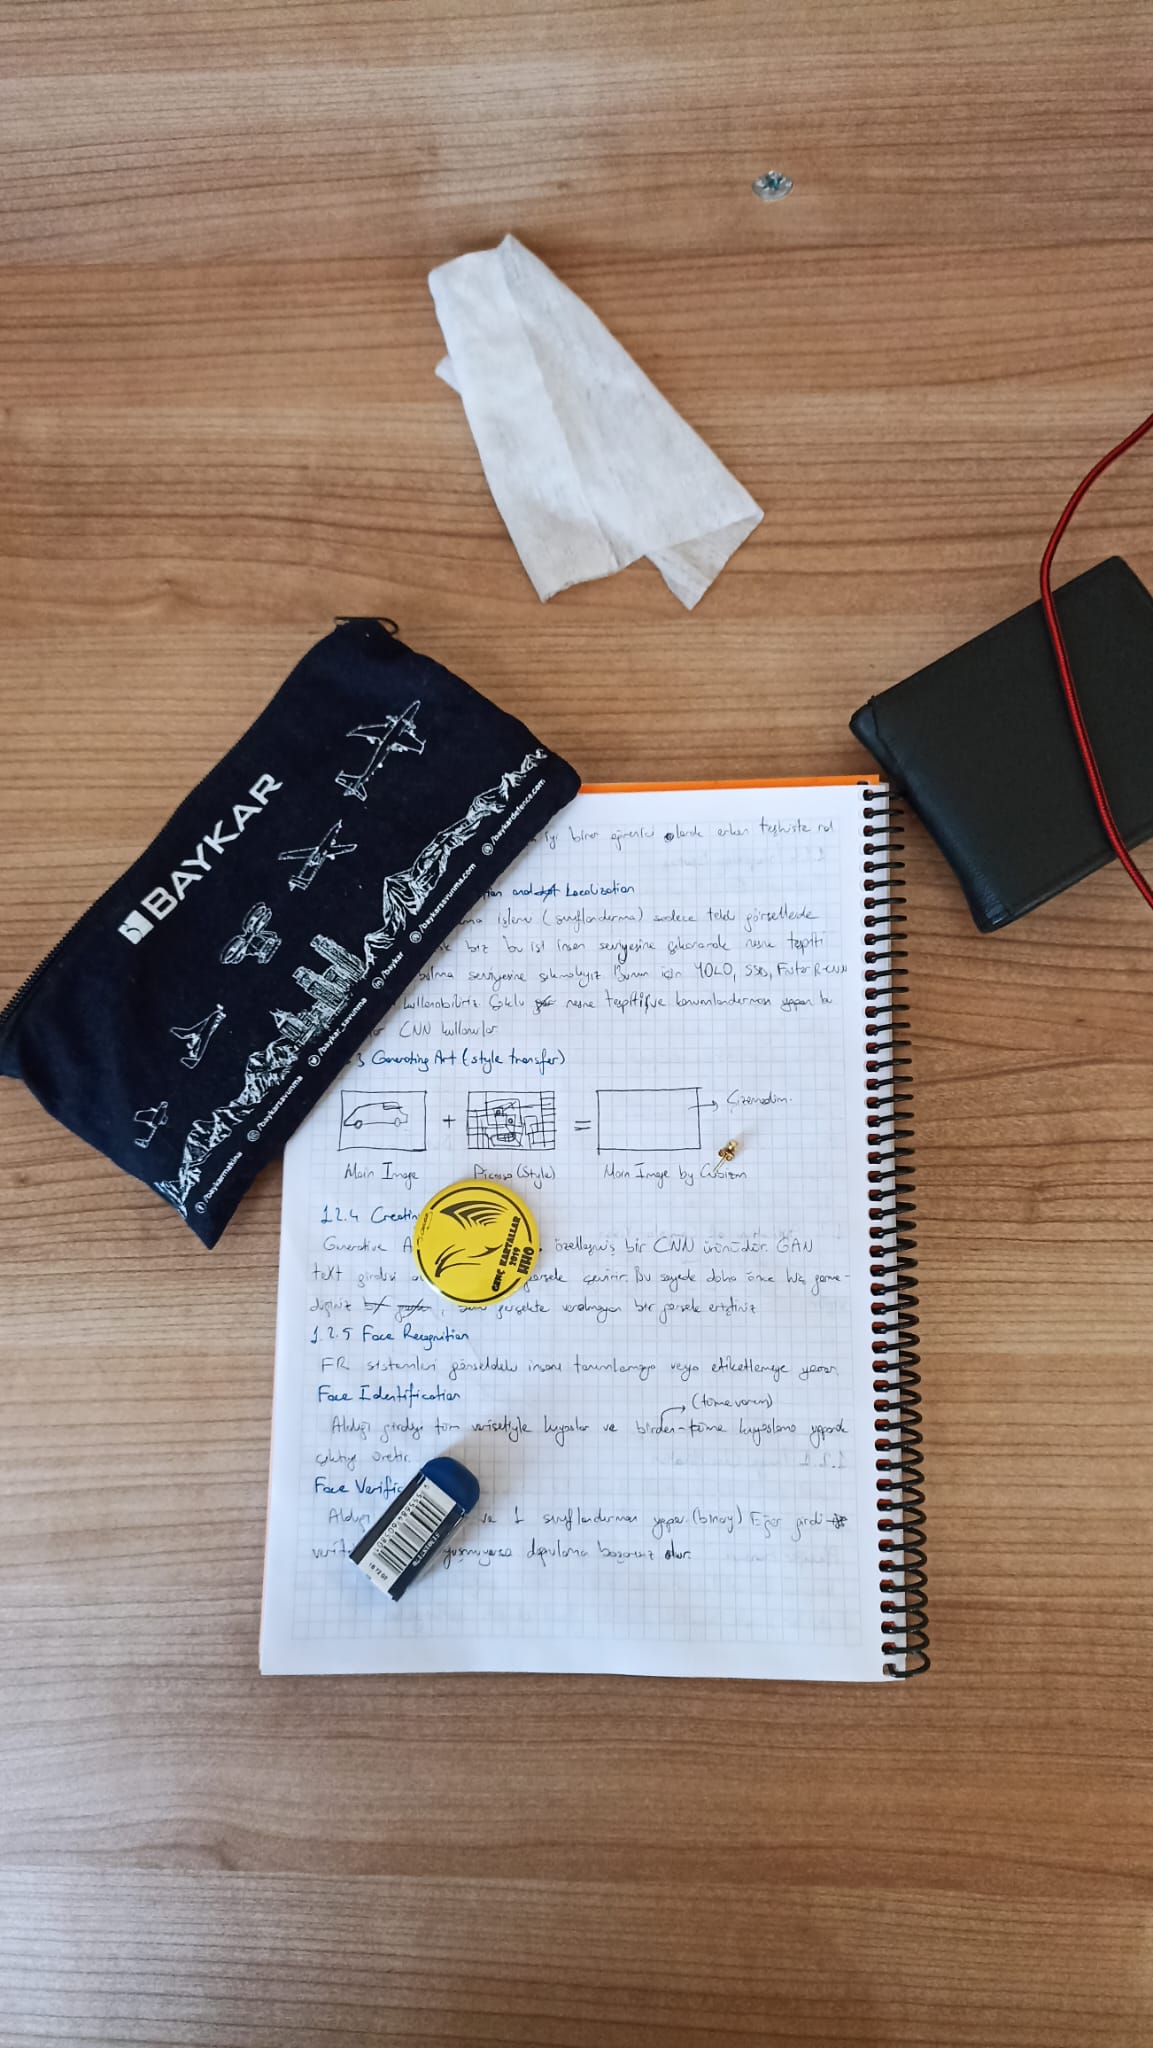 BAYKAR
/baykardefence.com
/baykarsavunma.com
/baykar
/baykar_savunma
/baykarsavunma
/baykarmakina
iyi birer öğrenici olarak erken teşhiste rol
and Localization
işlemi (sınıflandırma) sadece tekil görsellerde
biz bu işi insan seviyesine çıkararak nesne tespiti
bulma seviyesine çıkmalıyız. Bunun için YOLO, SSD, Faster R-CNN
kullanabiliriz. Çoklu nesne tespiti ve konumlandırması yapan bu
CNN kullanırlar
3 Generating Art (style transfer)
+
=
Çizemedim.
Main Image
Picasso (Style)
Main Image by Cubizm
1.2.4 Creatin
Generative A özelleşmiş bir CNN ürünüdür. GAN
tekt girdisi çevirir. Bu sayede daha önce hiç görme-
diğiniz gerçekte varolmayan bir görsele erişiriz
GENÇ KARTALLAR
2019
HHO
1.2.5 Face Recognition
FR sistemleri görseldeki insanı tanımlamaya veya etiketlemeye yarar.
Face Identification
(tümevarım)
Aldığı girdiyi tüm verisetiyle kıyaslar ve birden-tüme kıyaslama yaparak
çıktıyı üretir.
Face Verific
Aldığı ve 1 sınıflandırması yapar. (binary) Eğer girdi
uyuşmuyorsa doğrulama başarısız olur.
18 72 07